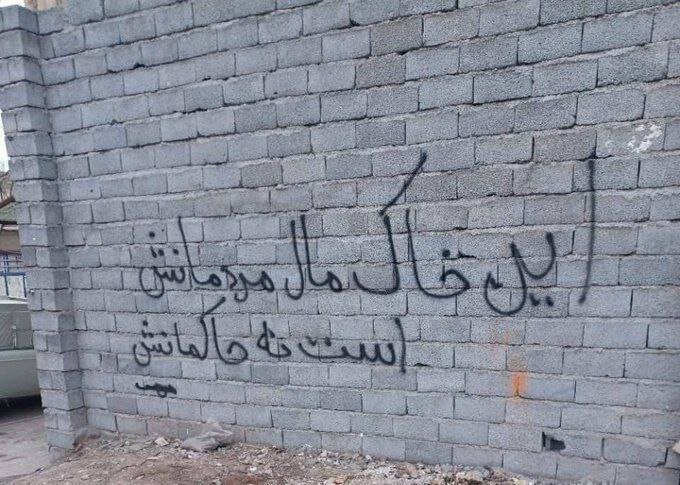 این خاک مال مردمانش
است نه حاکمانش